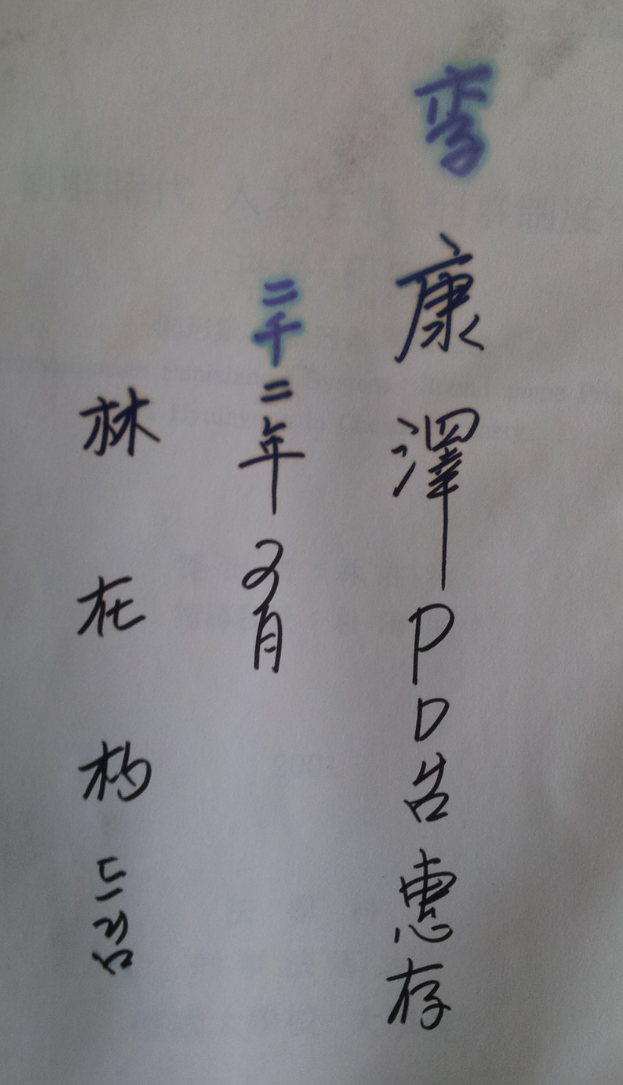 李康澤PD님惠存
二千二年 2月
林在杓 드림